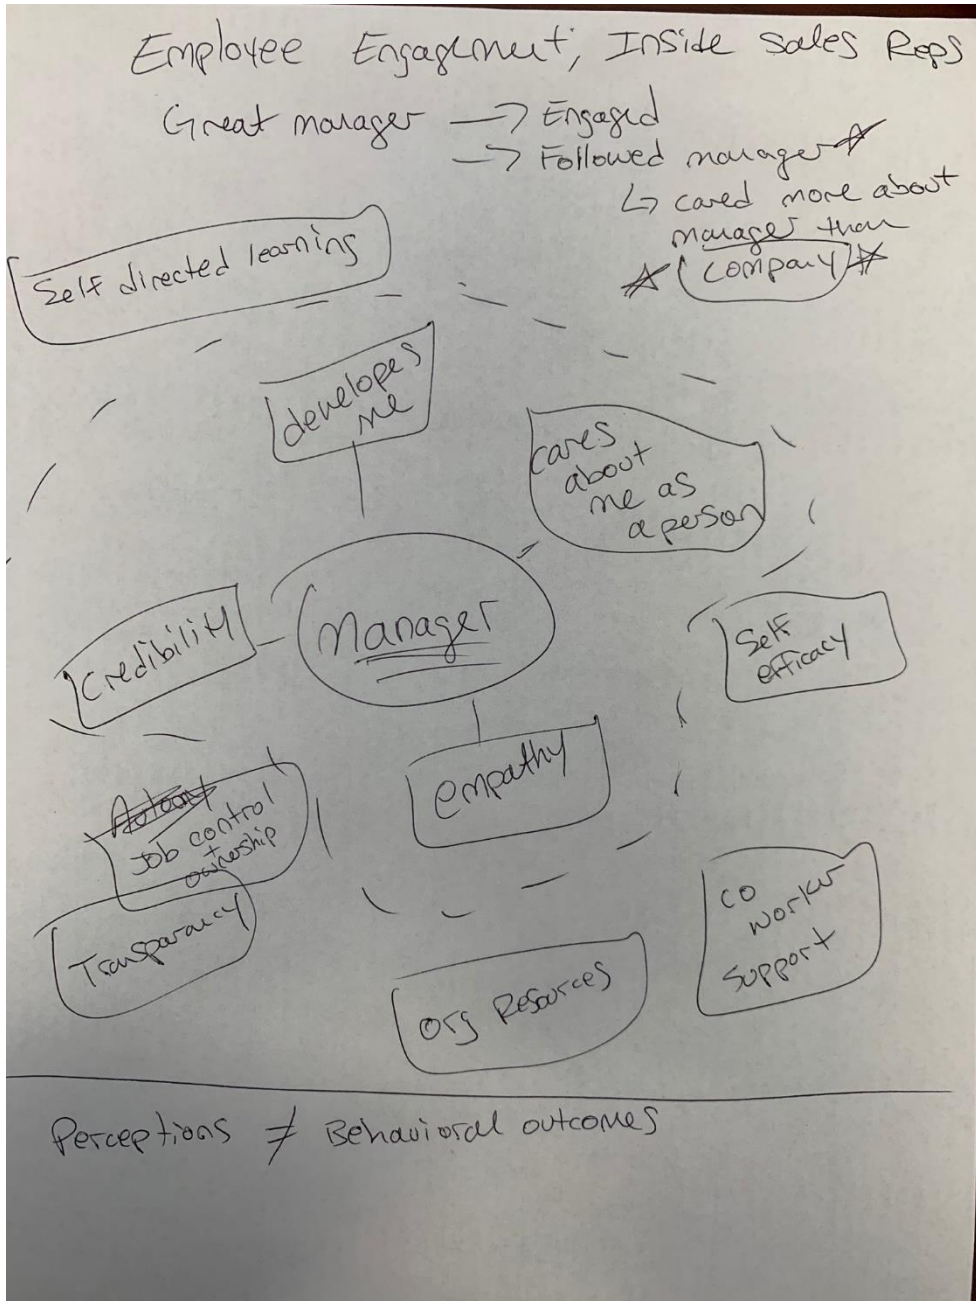 Employee Engagement, Inside Sales Reps
Great manager → Engaged
→ Followed manager ☆
↳ cared more about
manager than
☆ (Company) ☆
Self directed learning
developes
me
cares
about
me as
a person
Credibility
Manager
Self
efficacy
empathy
Job control
+
ownership
Transparancy
Co
worker
support
Org Resources
Perceptions ≠ Behavioral outcomes